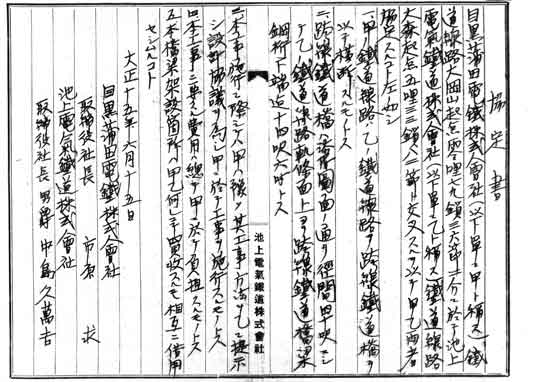 協定書
目黒蒲田電鐵株式會社(以下單ニ甲ト稱ス)鐵
道線路大岡山起点零哩七九鎖三六節二分ニ於テ池上
電氣鐵道株式會社(以下單ニ乙ト稱ス)鐵道線路
大森起点五哩三鎖八二節ト交叉スルヲ以テ甲乙両者
協定スル左如シ
一、甲ノ鐵道線路ハ乙ノ鐵道線路ヲ跨線鐵道橋ヲ
以テ横断スルモノトス
二、跨線鐵道橋ハ添付圖面ノ通リ径間四十呎ニシ
テ乙鐵道線路軌條面上ヨリ跨線鐵道橋梁
鋼桁下端迄十四呎六吋トス
三、本工事施行ニ際シテハ甲ハ豫メ其工事方法ヲ乙ニ提示
シ設計協議ヲ為シ甲ニ於テ工事ヲ施行スルモノトス
四、本工事ニ要スル費用ハ總テ甲ニ於テ負担スルモノトス
五、本橋梁架設箇所ハ甲乙何レニテ買收スルモ相互ニ借用
セシムルコト
大正十五年六月十五日
目黒蒲田電鐵株式會社
取締役社長 市原 求
池上電氣鐵道株式會社
取締役社長 男爵 中島久萬吉
池上電氣鐵道株式會社